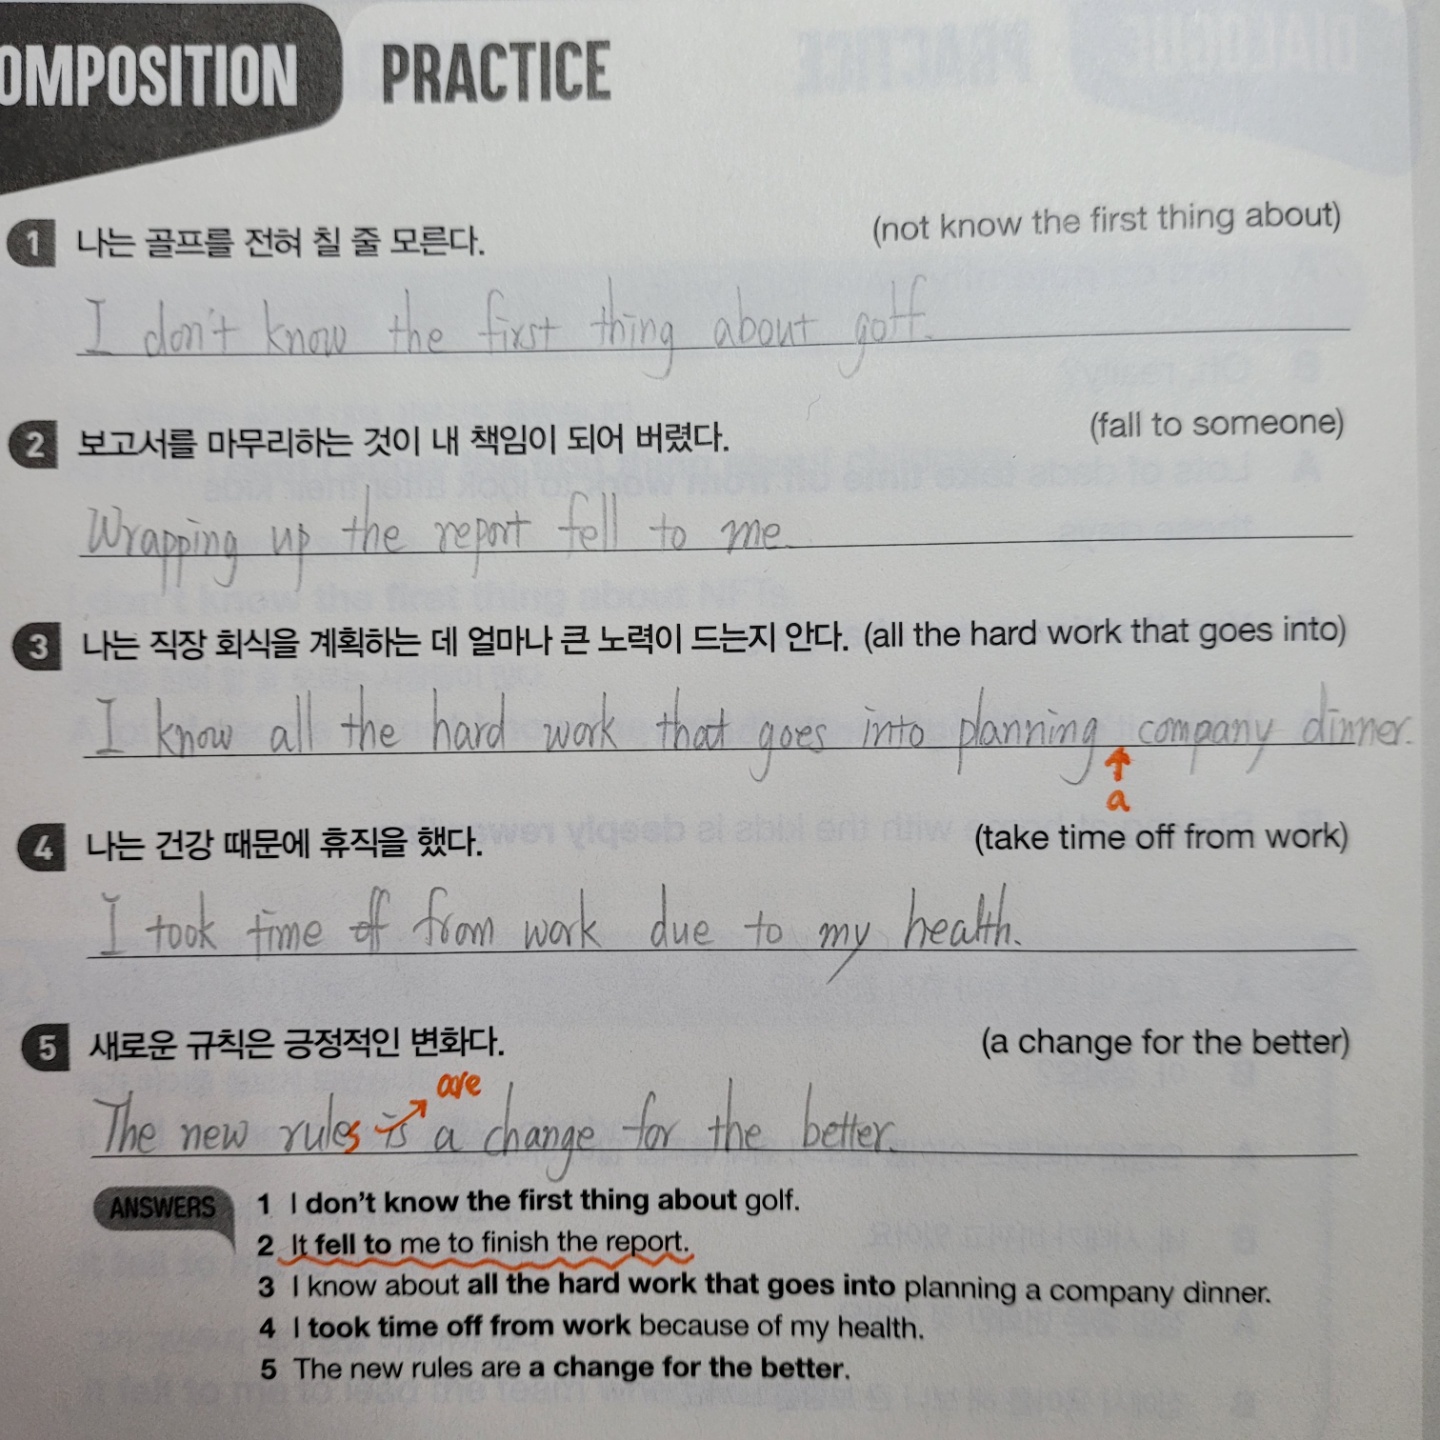 OMPOSITION PRACTICE
1 나는 골프를 전혀 칠 줄 모른다. (not know the first thing about)
I don't know the first thing about golf.
2 보고서를 마무리하는 것이 내 책임이 되어 버렸다. (fall to someone)
Wrapping up the report fell to me.
3 나는 직장 회식을 계획하는 데 얼마나 큰 노력이 드는지 안다. (all the hard work that goes into)
I know all the hard work that goes into planning company dinner.
a
4 나는 건강 때문에 휴직을 했다. (take time off from work)
I took time off from work due to my health.
5 새로운 규칙은 긍정적인 변화다. (a change for the better)
are
The new rules is a change for the better.
ANSWERS 1 I don't know the first thing about golf.
2 It fell to me to finish the report.
3 I know about all the hard work that goes into planning a company dinner.
4 I took time off from work because of my health.
5 The new rules are a change for the better.